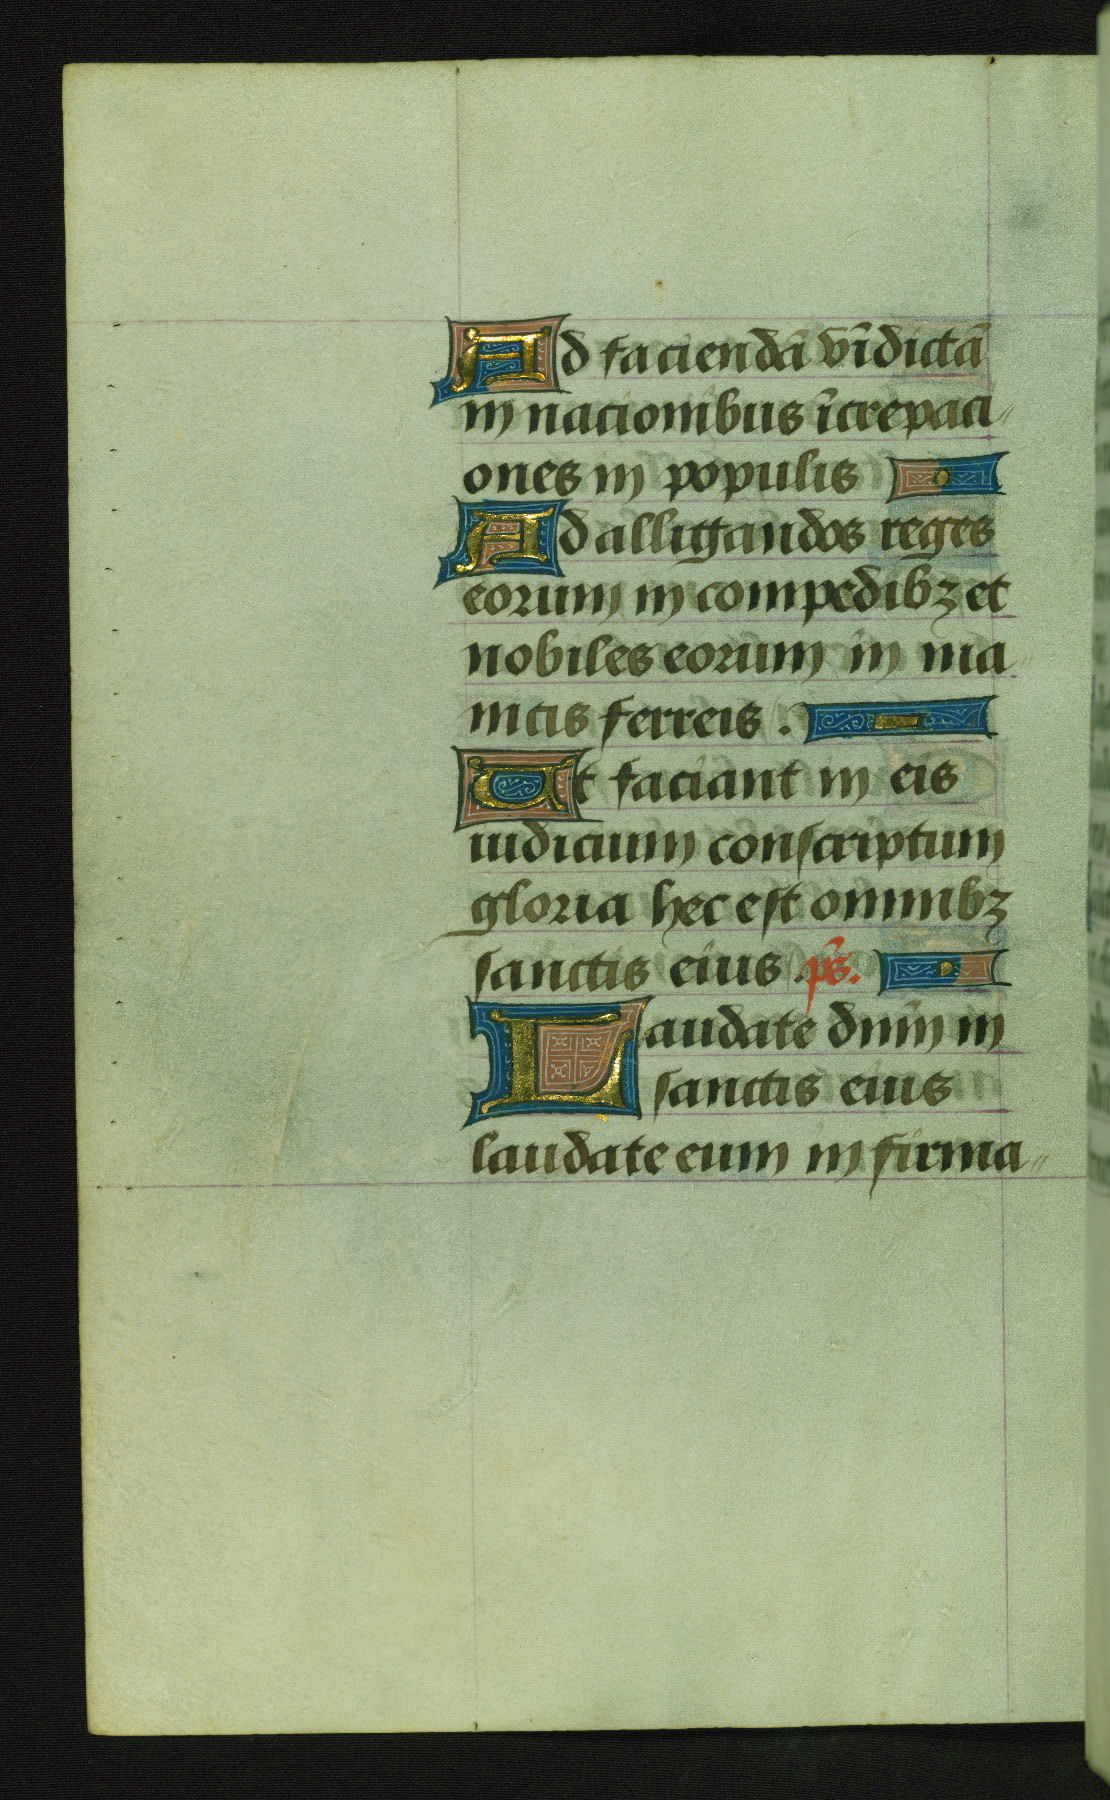 Ad faciendā vīdictā
in nacionibus īcrepaci
ones in populis
Ad alligandos reges
eorum in compedibꝫ et
nobiles eorum in ma
nicis ferreis .
Ut faciant in eis
iudicium conſcriptum
gloria hec eſt omnibꝫ
sanctis eius .p̄s.
Laudate dnīm in
sanctis eius
laudate eum in firma